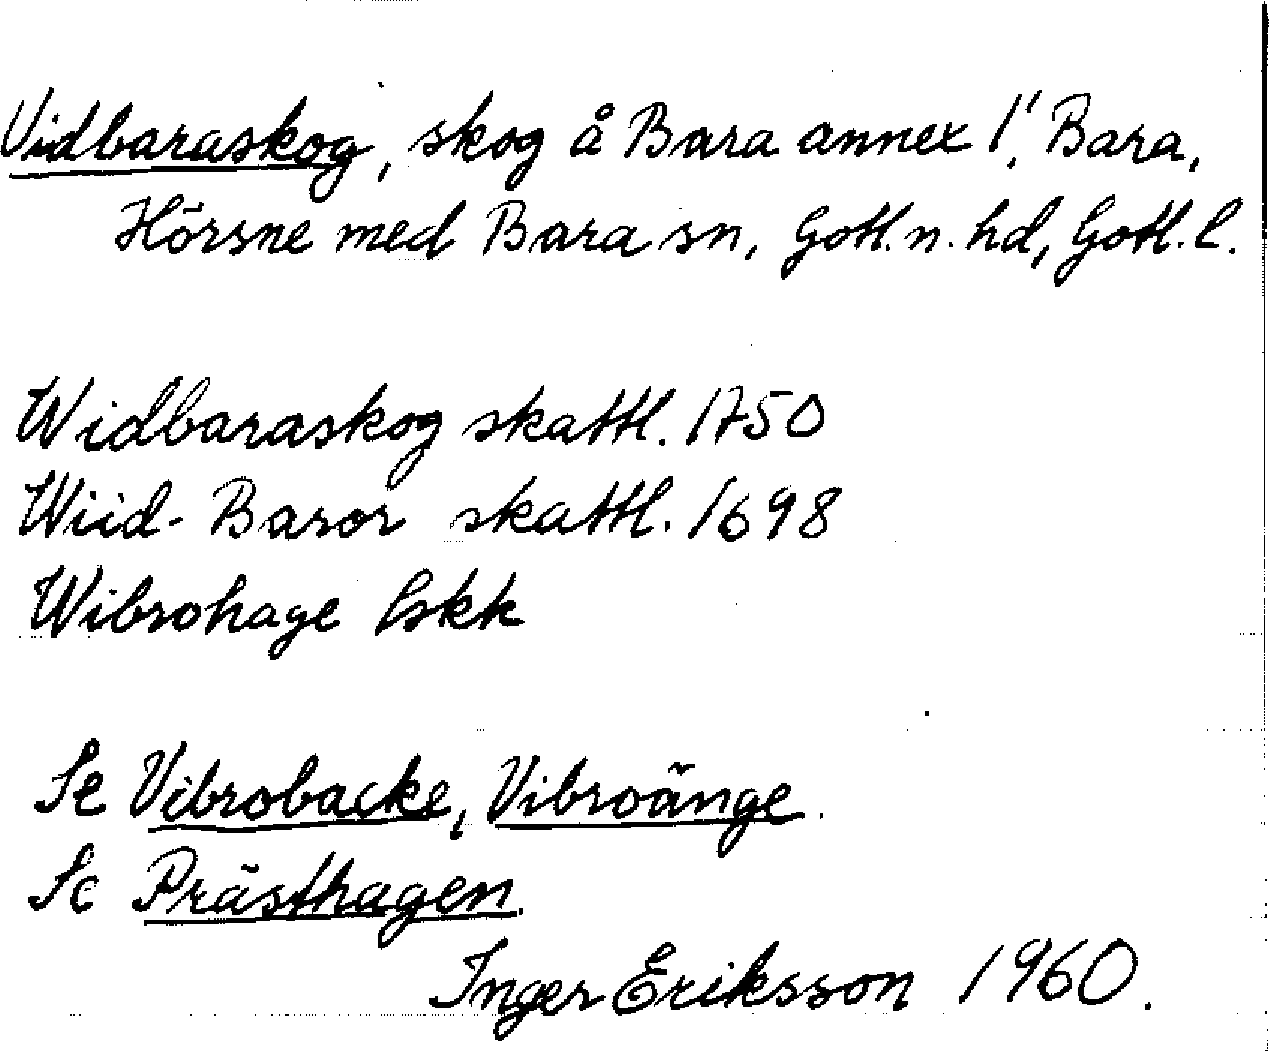 Vidbaraskog, skog å Bara annex 1!, Bara,
Hörsne med Bara sn, Gotl. n. hd, Gotl. l.
Widbaraskog skattl. 1750
Wiid-Baror skattl. 1698
Wibrohage lskk
Se Vibrobacke, Vibroänge.
Se Prästhagen.
Inger Eriksson 1960.